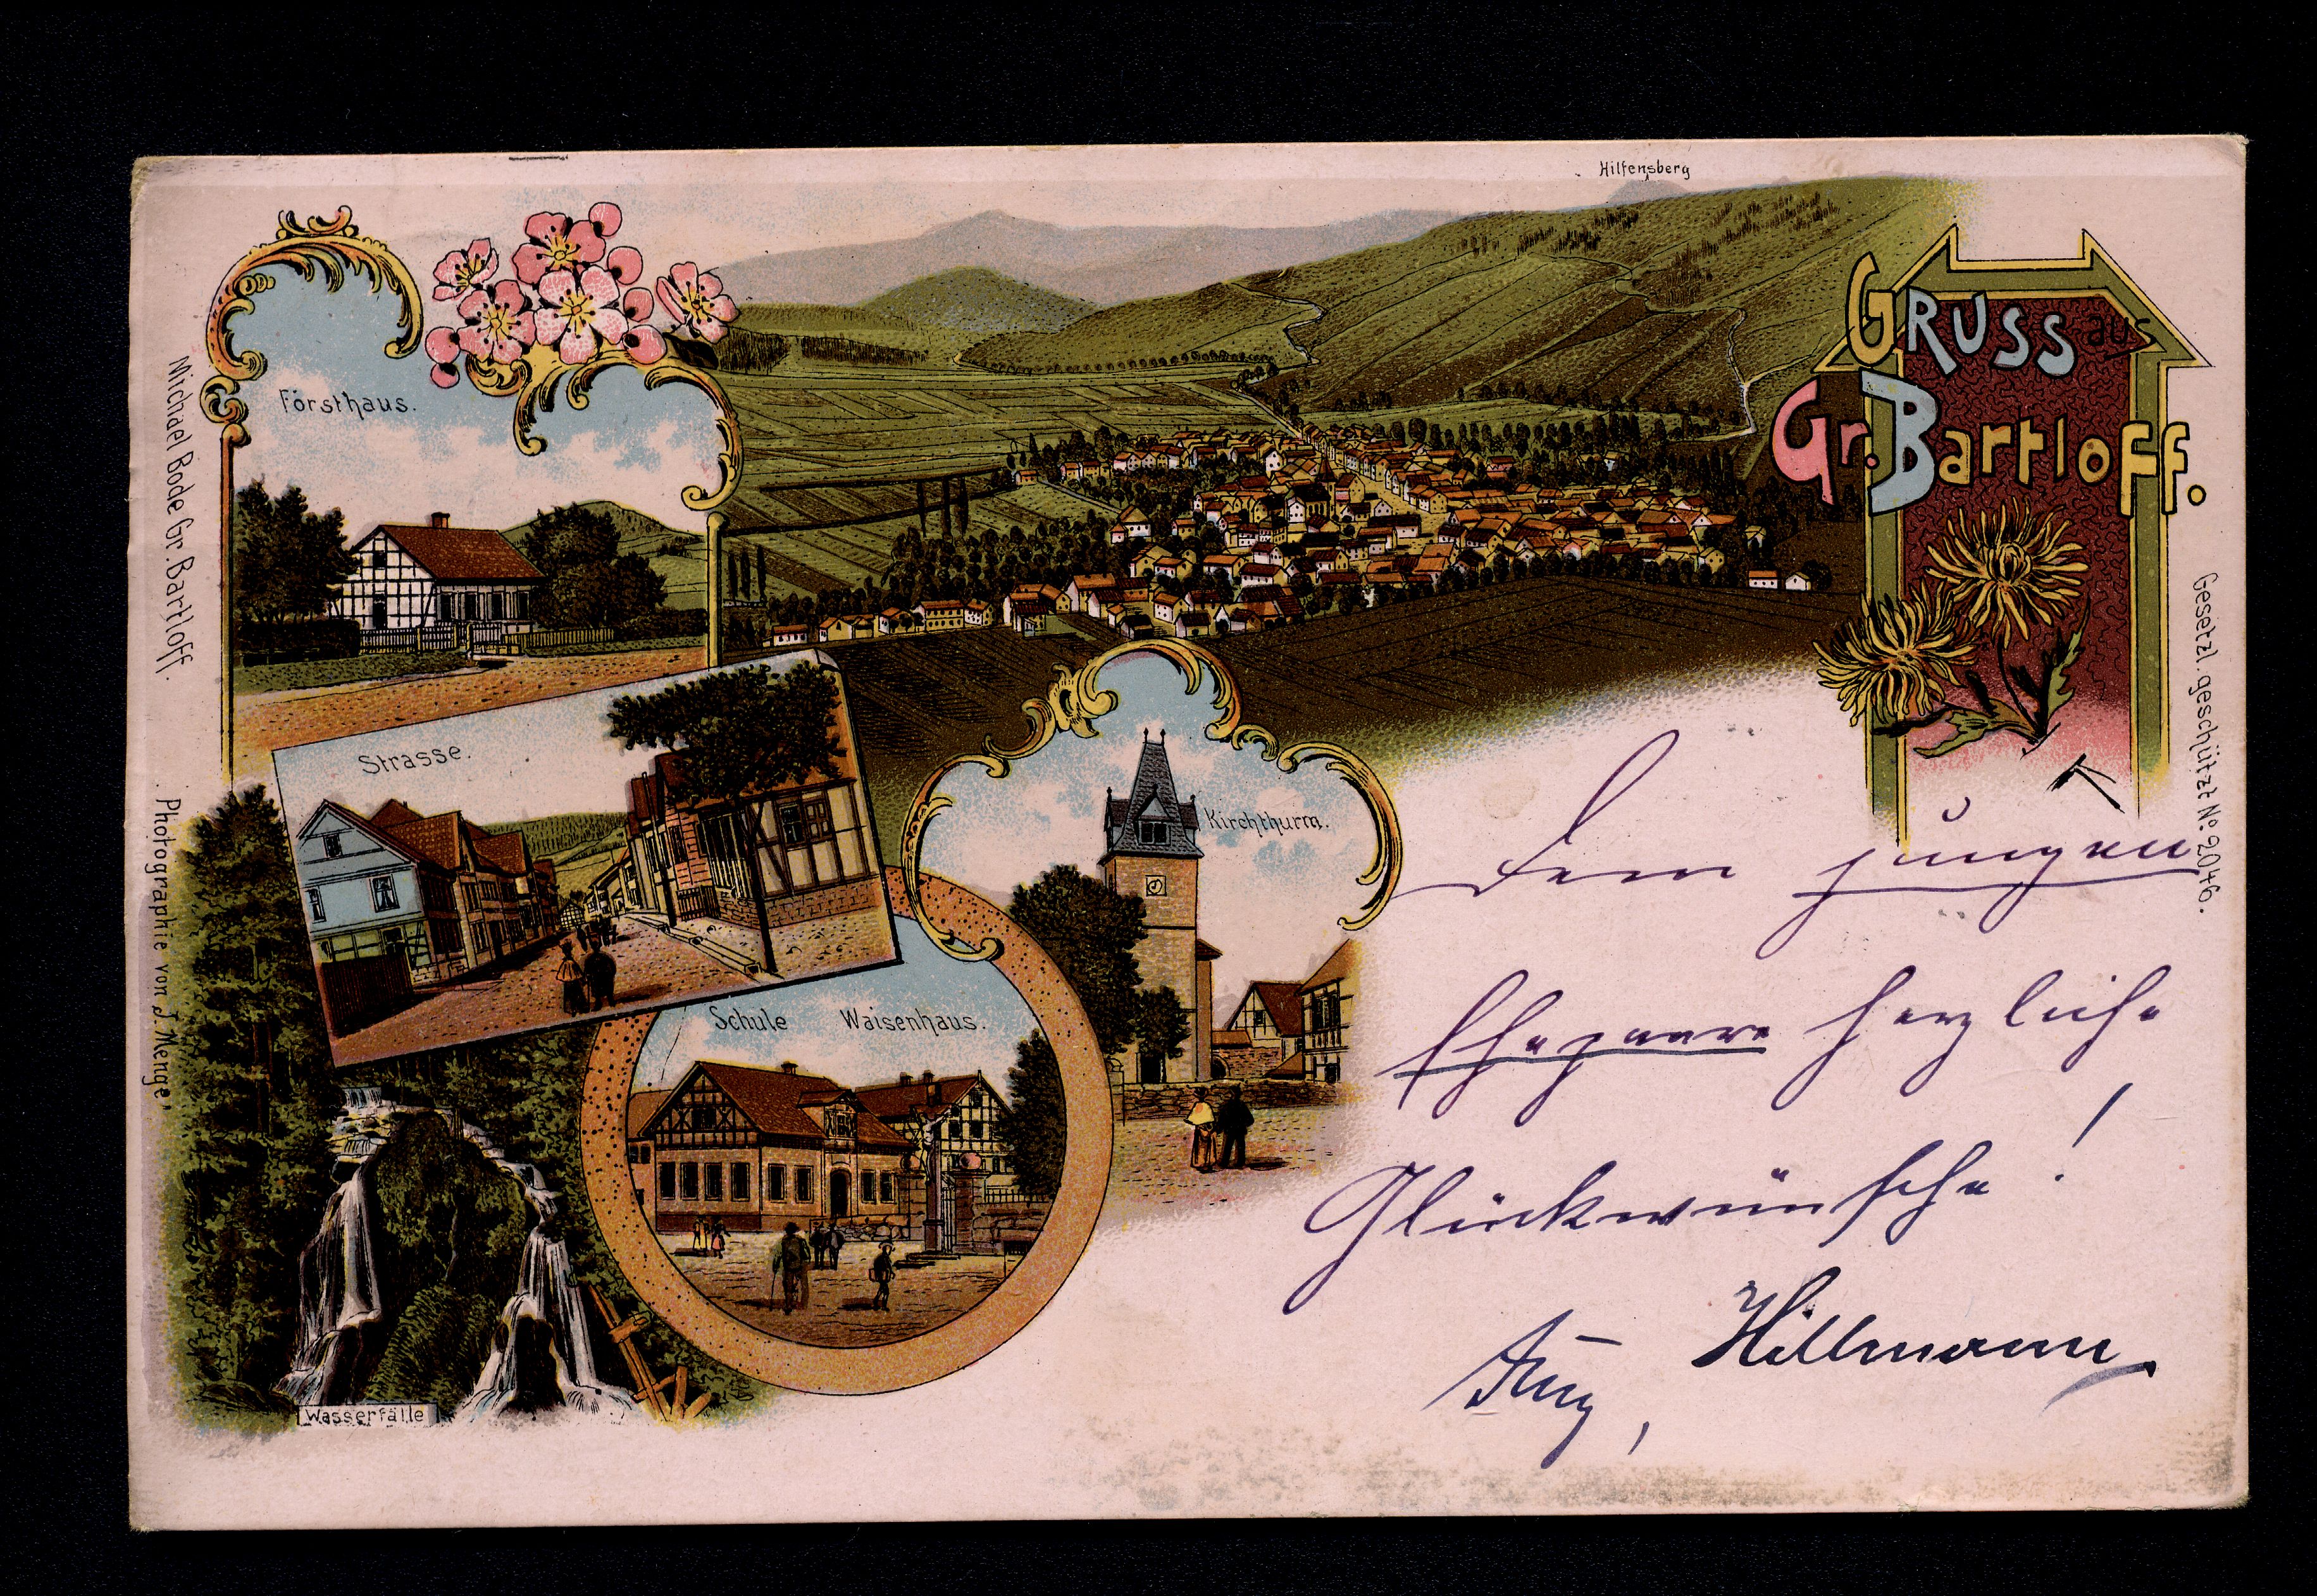 Hilfensberg
GRUSS aus
Gr. Bartloff.
Forsthaus.
Strasse.
Kirchthurm.
Schule Waisenhaus.
Wasserfälle
Michael Bode Gr. Bartloff.
Photographie von J. Menge.
Gesetzl. geschützt No. 2046.
Dem jungen
Ehepaare herzliche
Glückwünsche!
Aug, Hillmann